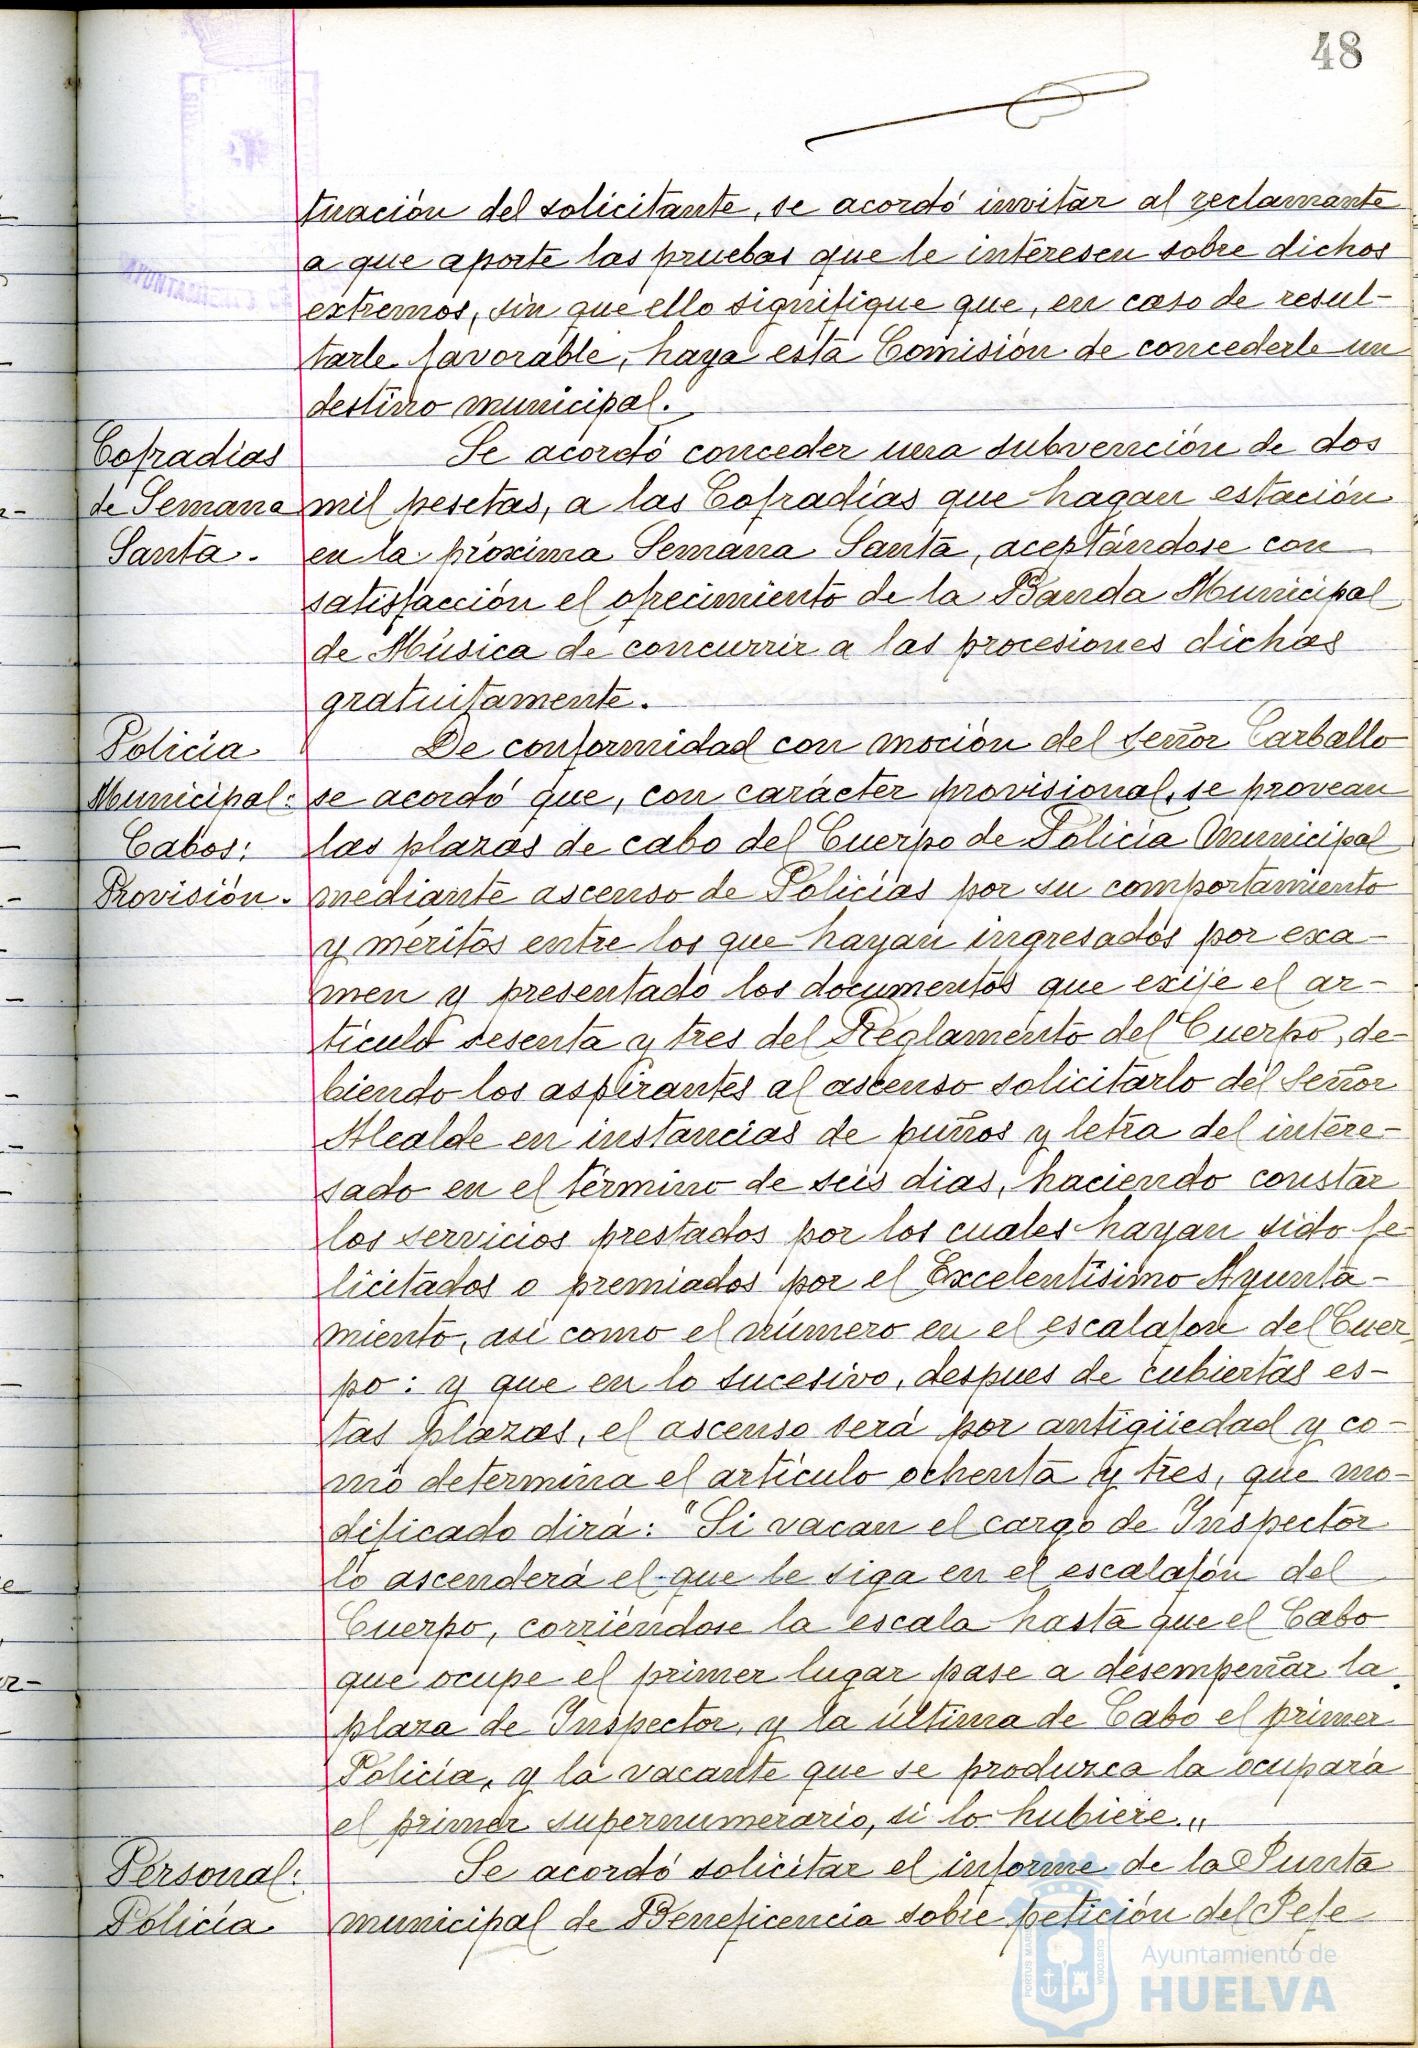 48
tuación del solicitante, se acordó invitar al reclamante
a que aporte las pruebas que le interesen sobre dichos
extremos, sin que ello signifique que, en caso de resul-
tarle favorable, haya esta Comisión de concederle un
destino municipal.
Cofradías
de Semana
Santa.
Se acordó conceder una subvención de dos
mil pesetas, a las Cofradías que hagan estación
en la próxima Semana Santa, aceptándose con
satisfacción el ofrecimiento de la Banda Municipal
de Música de concurrir a las procesiones dichas
gratuitamente.
Policía
Municipal:
Cabos:
Provisión.
De conformidad con moción del señor Carballo
se acordó que, con carácter provisional, se provean
las plazas de cabo del Cuerpo de Policía Municipal
mediante ascenso de Policías por su comportamiento
y méritos entre los que hayan ingresados por exa-
men y presentado los documentos que exije el ar-
tículo sesenta y tres del Reglamento del Cuerpo, de-
biendo los aspirantes al ascenso solicitarlo del Señor
Alcalde en instancias de puños y letra del intere-
sado en el término de seis dias, haciendo constar
los servicios prestados por los cuales hayan sido fe-
licitados o premiados por el Excelentísimo Ayunta-
miento, asi como el número en el escalafon del Cuer
po: y que en lo sucesivo, despues de cubiertas es-
tas plazas, el ascenso será por antigüedad y co-
mo determina el artículo ochenta y tres, que mo-
dificado dirá: "Si vacan el cargo de Inspector
lo ascenderá el que le siga en el escalafón del
Cuerpo, corriéndose la escala hasta que el Cabo
que ocupe el primer lugar pase a desempeñar la
plaza de Inspector, y la última de Cabo el primer
Policía, y la vacante que se produzca la ocupará
el primer supernumerario, si lo hubiere."
Personal:
Policía
Se acordó solicitar el informe de la Junta
municipal de Beneficencia sobre petición del Jefe
Ayuntamiento de
HUELVA